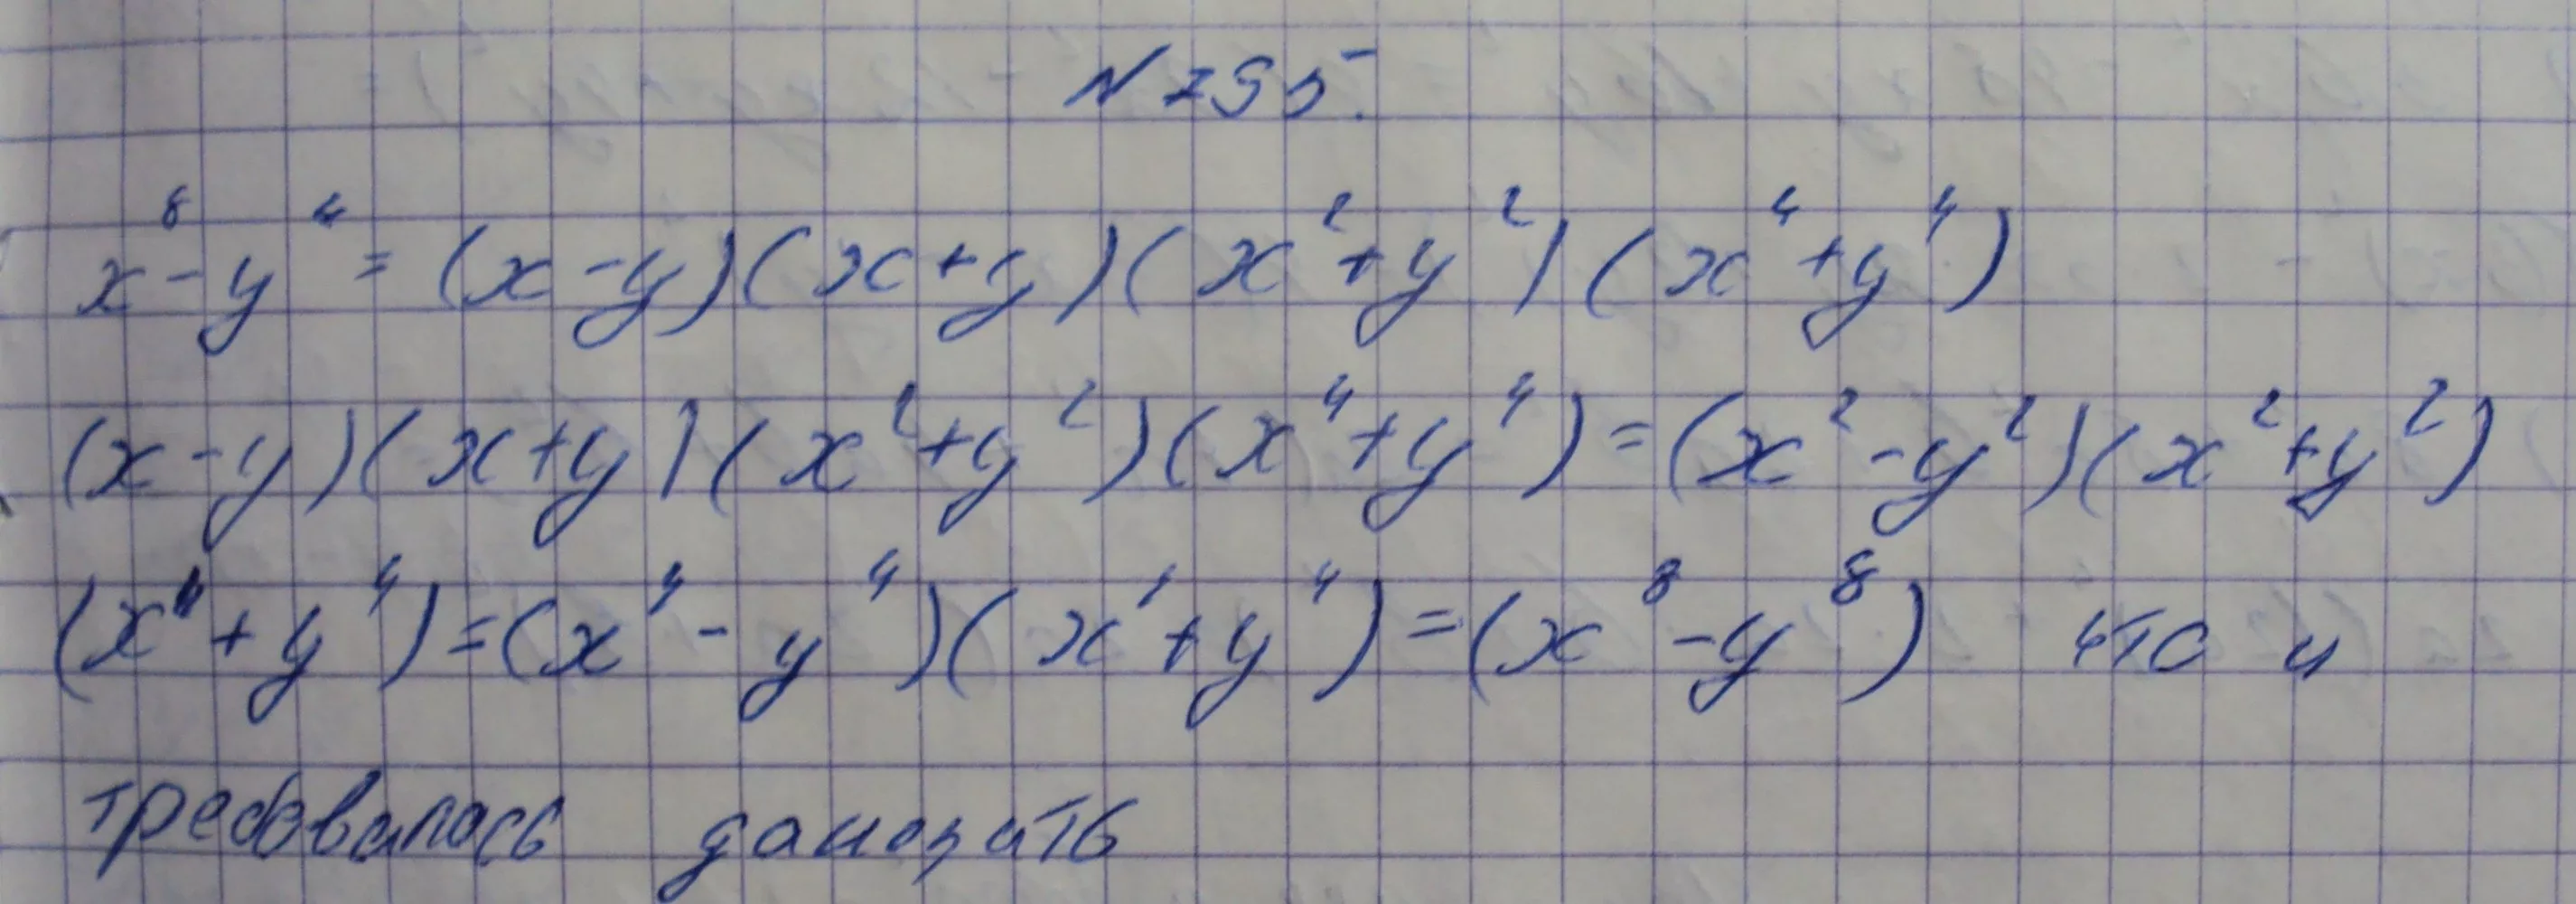 N 795.
x⁸ - y⁴ = (x - y)(x + y)(x² + y²)(x⁴ + y⁴)
(x - y)(x + y)(x² + y²)(x⁴ + y⁴) = (x² - y²)(x² + y²)
(x⁴ + y⁴) = (x⁴ - y⁴)(x⁴ + y⁴) = (x⁸ - y⁸) что и
требовалось